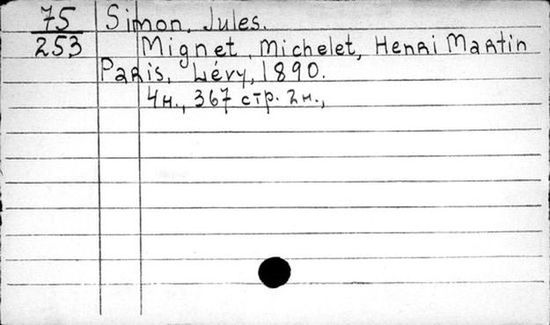 75 Simon, Jules.
253 Mignet, Michelet, Henri Martin
Paris, Lévy, 1890.
4н., 367 стр. 2н.,